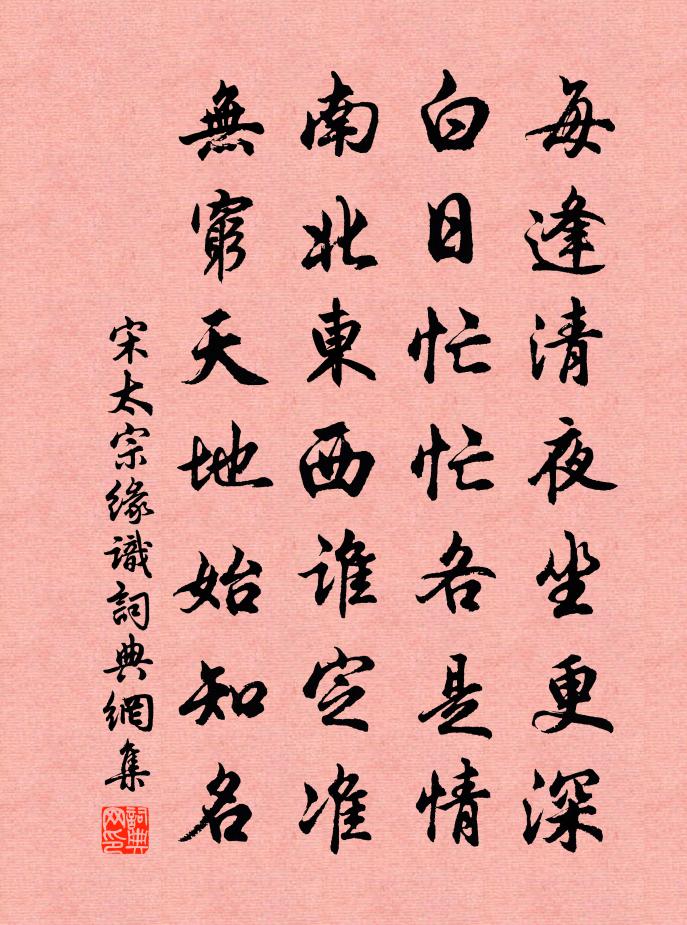 每逢清夜坐更深
白日忙忙各是情
南北東西誰定准
無窮天地始知名
宋太宗緣識詞典網集
詞典
网印